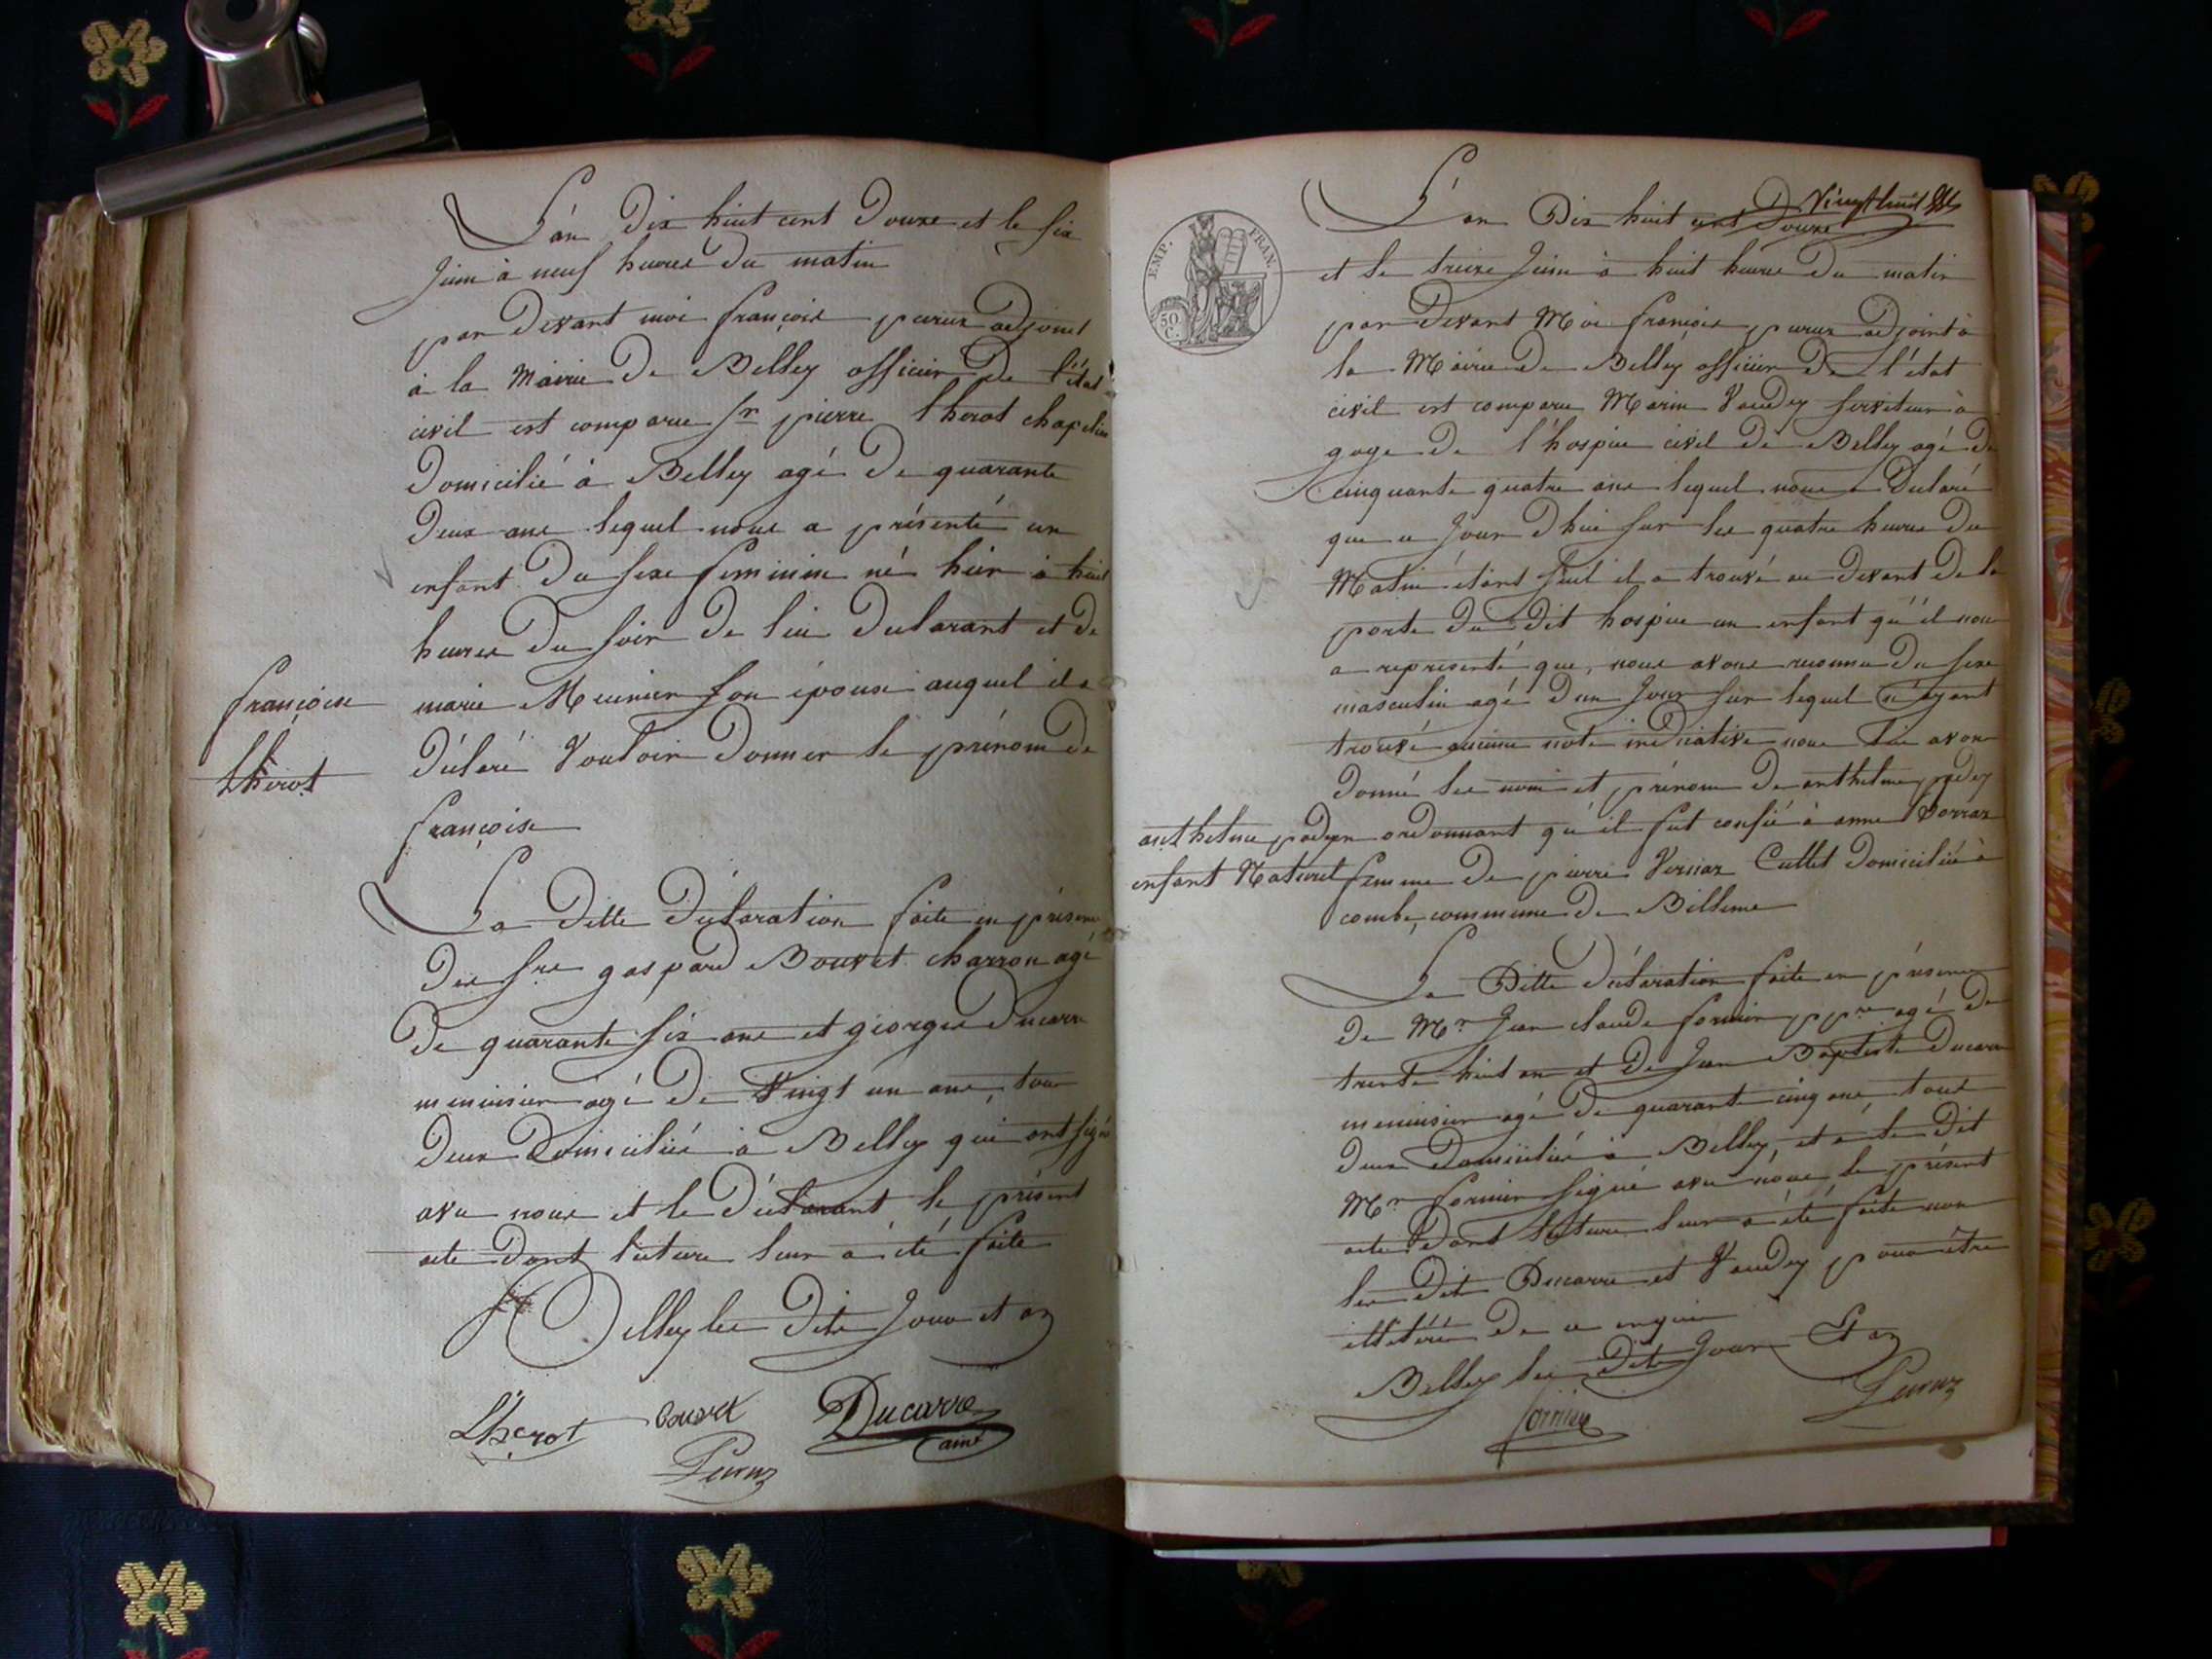 L'an Dix huit cent Douze et le six
Juin à neuf heures du matin
par devant moi françois parux adjoint
à la Mairie De Belley officier De l'état
civil est comparu Sr pierre l'herot chapelier
Domicilié à Belley agé De quarante
Deux ans lequel nous a présenté un
enfant Du sexe feminin né hier à huit
heures Du soir De lui Déclarant et De
marie Meunier son épouse auquel il a
Déclaré Vouloir Donner le prénom De
françoise
françoise
L'herot
La Ditte Déclaration faite en présence
Des Srs gaspard Bouvet charron agé
De quarante six ans et georges Ducarre
menuisier agé De Vingt un ans, tous
Deux Domiciliés à Belley qui ont signé
avec nous et le Déclarant le présent
acte Dont lecture leur a été faite
Belley les Dits Jour et an
L'herot Bouvet Ducarre
ainé
EMP. FRAN.
50 C.
Vingt huit
L'an Dix huit cent Douze
et le treize Juin à huit heures Du matin
par Devant Moi françois parux adjoint à
la Mairie De Belley officier De l'état
civil est comparu Marin Vaudey serviteur à
gage De l'hospice civil De Belley agé De
cinquante quatre ans lequel nous a Déclaré
que ce Jour D'hui sur les quatre heures Du
Matin étant seul il a trouvé au Devant De la
porte Du Dit hospice un enfant qu'il nous
a representé que, nous avons reconnu Du sexe
masculin agé D'un Jour sur lequel n'ayant
trouvé aucune note indicative nous lui avons
Donné les nom et prénom De anthelme
ordonnant qu'il fut confié à anne
femme De pierre Cullet Domicilié à
combe, commune De Billieme
anthelme
enfant Naturel
La Ditte Déclaration faite en présence
De Mr Jean claude fornier ppre agé De
trente huit ans et De Jean Baptiste Ducarre
menuisier agé De quarante cinq ans, tous
Deux Domiciliés à Belley, et a le Dit
Mr fornier signé avec nous le présent
acte Dont lecture leur a été faite non
les Dits Ducarre et Vaudey pour être
illitérés De ce enquis
Belley les Dits Jour Et an
fornier